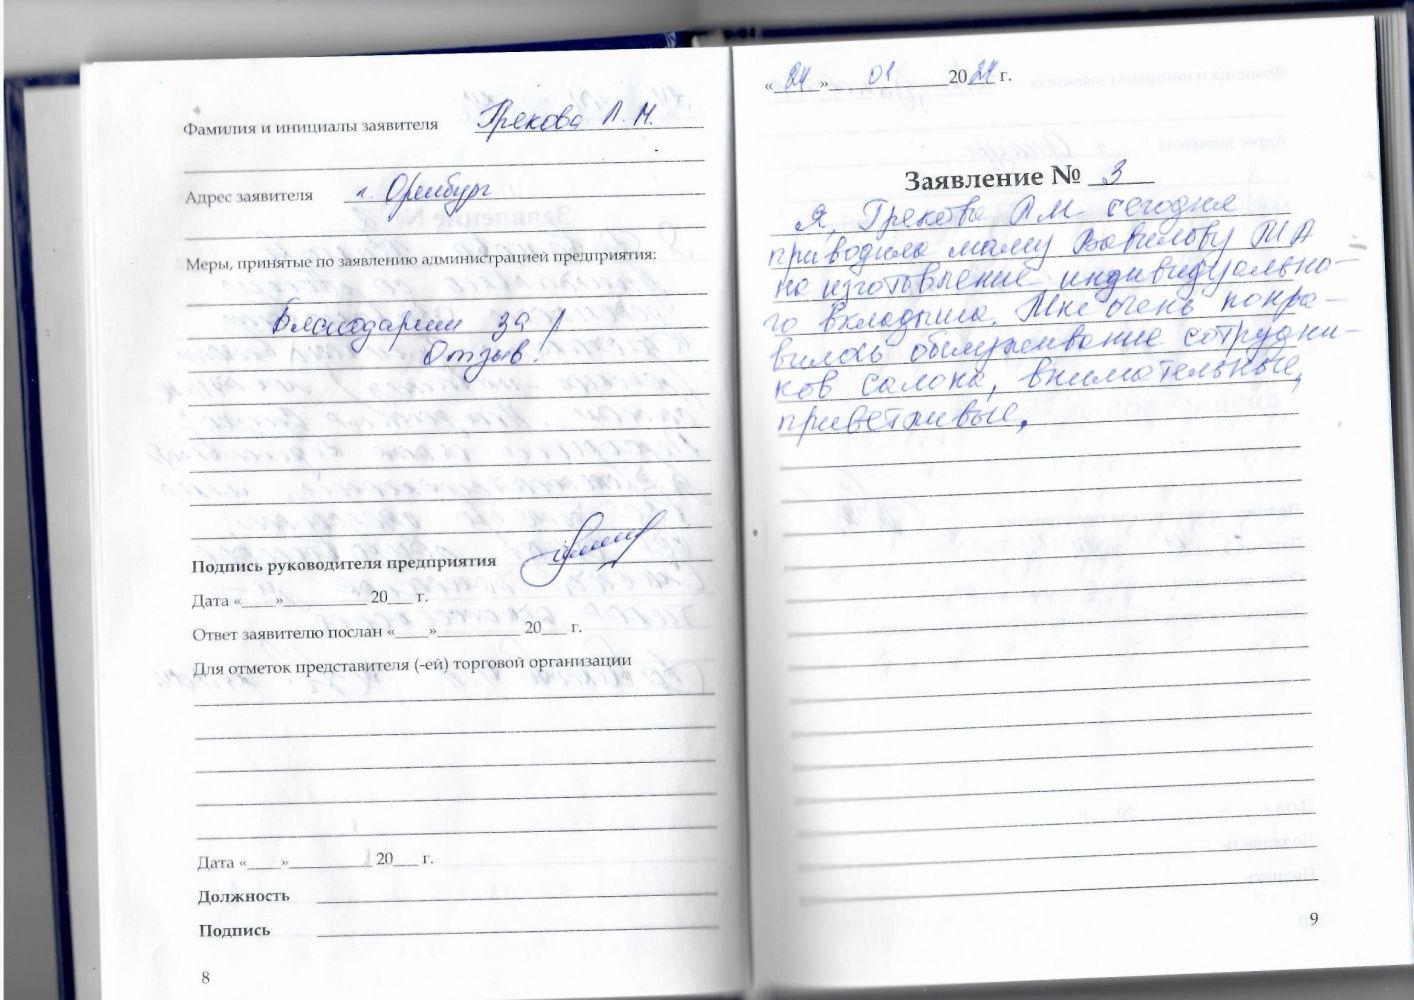 Фамилия и инициалы заявителя Грекова Л. М.
Адрес заявителя г. Оренбург
Меры, принятые по заявлению администрацией предприятия:
Благодарим за
Отзыв!
Подпись руководителя предприятия
Дата «____»__________ 20___ г.
Ответ заявителю послан «____»__________ 20___ г.
Для отметок представителя (-ей) торговой организации
Дата «____»__________ 20___ г.
Должность
Подпись
8
«24» 01 2024 г.
Заявление № 3
Я, Грекова ЛМ сегодня
приводила маму Вавилову
на изготовление индивидуально-
го вкладыша. Мне очень понра-
вилось обслуживание сотрудни-
ков салона, внимательные,
приветливые.
9